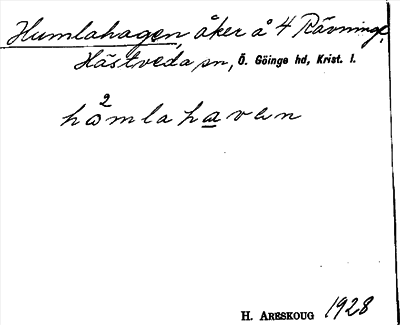 Humlahagen, åker å 4 Rävninge,
Hästveda sn, Ö. Göinge hd, Krist. l.
2
hωmlahavan
H. ARESKOUG 1928